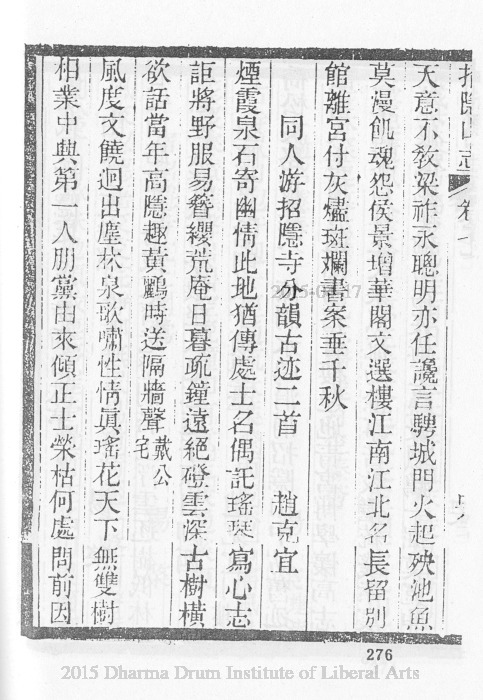 招隱山志 卷十 十六
天意不教梁祚永聰明亦任讒言騁城門火起殃池魚
莫漫飢魂怨侯景增華閣文選樓江南江北名長留別
館離宮付灰燼斑斕書案垂千秋
同人游招隱寺分韻古迹二首 趙克宜
煙霞泉石寄幽情此地猶傳處士名偶託瑤琴寫心志
詎將野服易簪纓荒庵日暮疏鐘遠絕磴雲深古樹橫
欲話當年高隱趣黃鸝時送隔牆聲 戴公宅
風度文饒迥出塵林泉歌嘯性情真瑤花天下無雙樹
相業中興第一人朋黨由來傾正士榮枯何處問前因
276
2015 Dharma Drum Institute of Liberal Arts